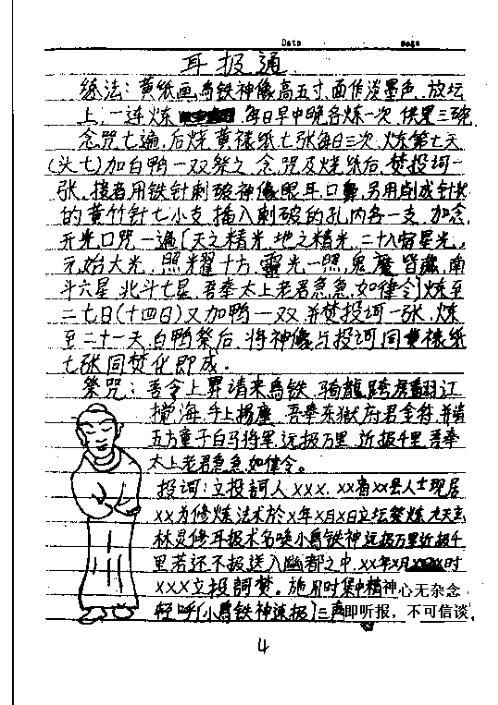 Date Page
耳报通
练法：黄纸画乌铁神像高五寸，面作淡墨色，放坛
上，一连炼 每日早中晚各炼一次，供果三碗，
念咒七遍，后烧黄裱纸七张每日三次，炼第七天
(头七)加白鸭一双祭之，念咒及烧纸后，焚投词一
张，接着用铁针刺破神像眼耳口鼻，另用削成针状
的黄竹针七小支，插入刺破的孔内各一支，加念
开光口咒一遍〔天之精光，地之精光，二十八宿星光，
元始大光，照耀十方，靈光一照，鬼魔皆藏，南
斗六星，北斗七星，吾奉太上老君急急如律令〕炼至
二七日(十四日)又加鸭一双，并焚投词一张，炼
至二十一天，白鸭祭后，将神像与投词同黄裱纸
七张同焚化即成。
祭咒：吾令上界请来乌铁，骑龍跨虎翻江
搅海，手上 座，吾奉东狱府君金符，并请
五方童子白马将军，远报万里，近报千里，吾奉
太上老君急急如律令。
投词：立投詞人xxx，xx省xx县人士现居
xx为修炼法术於x年x月x日立坛祭炼九天玄
林灵修耳报术名唤小乌铁神远报万里近报千
里若还不报送入幽都之中，xx年x月 时
xxx立投詞焚。施用时集中精神心无杂念，
轻呼〔小乌铁神速报〕三声即听报，不可信谈。
4